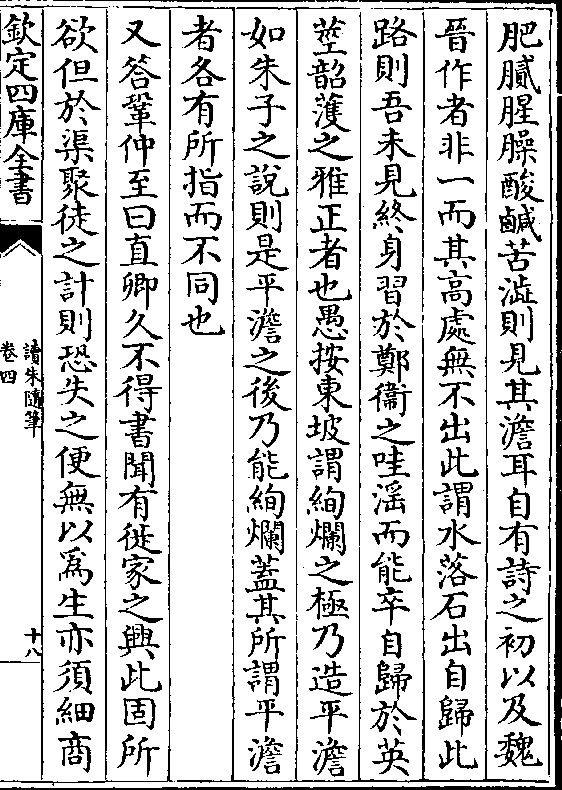 肥膩腥臊酸鹹苦澁則見其澹耳自有詩之初以及魏
晉作者非一而其高處無不出此謂水落石出自歸此
路則吾未見終身習於鄭衞之哇滛而能卒自歸於英
莖韶濩之雅正者也愚按東坡謂絢爛之極乃造平澹
如朱子之說則是平澹之後乃能絢爛蓋其所謂平澹
者各有所指而不同也
又答鞏仲至曰直卿久不得書聞有徙家之興此固所
欲但於渠聚徒之計則恐失之便無以為生亦須細商
欽定四庫全書
讀朱隨筆
卷四
十八